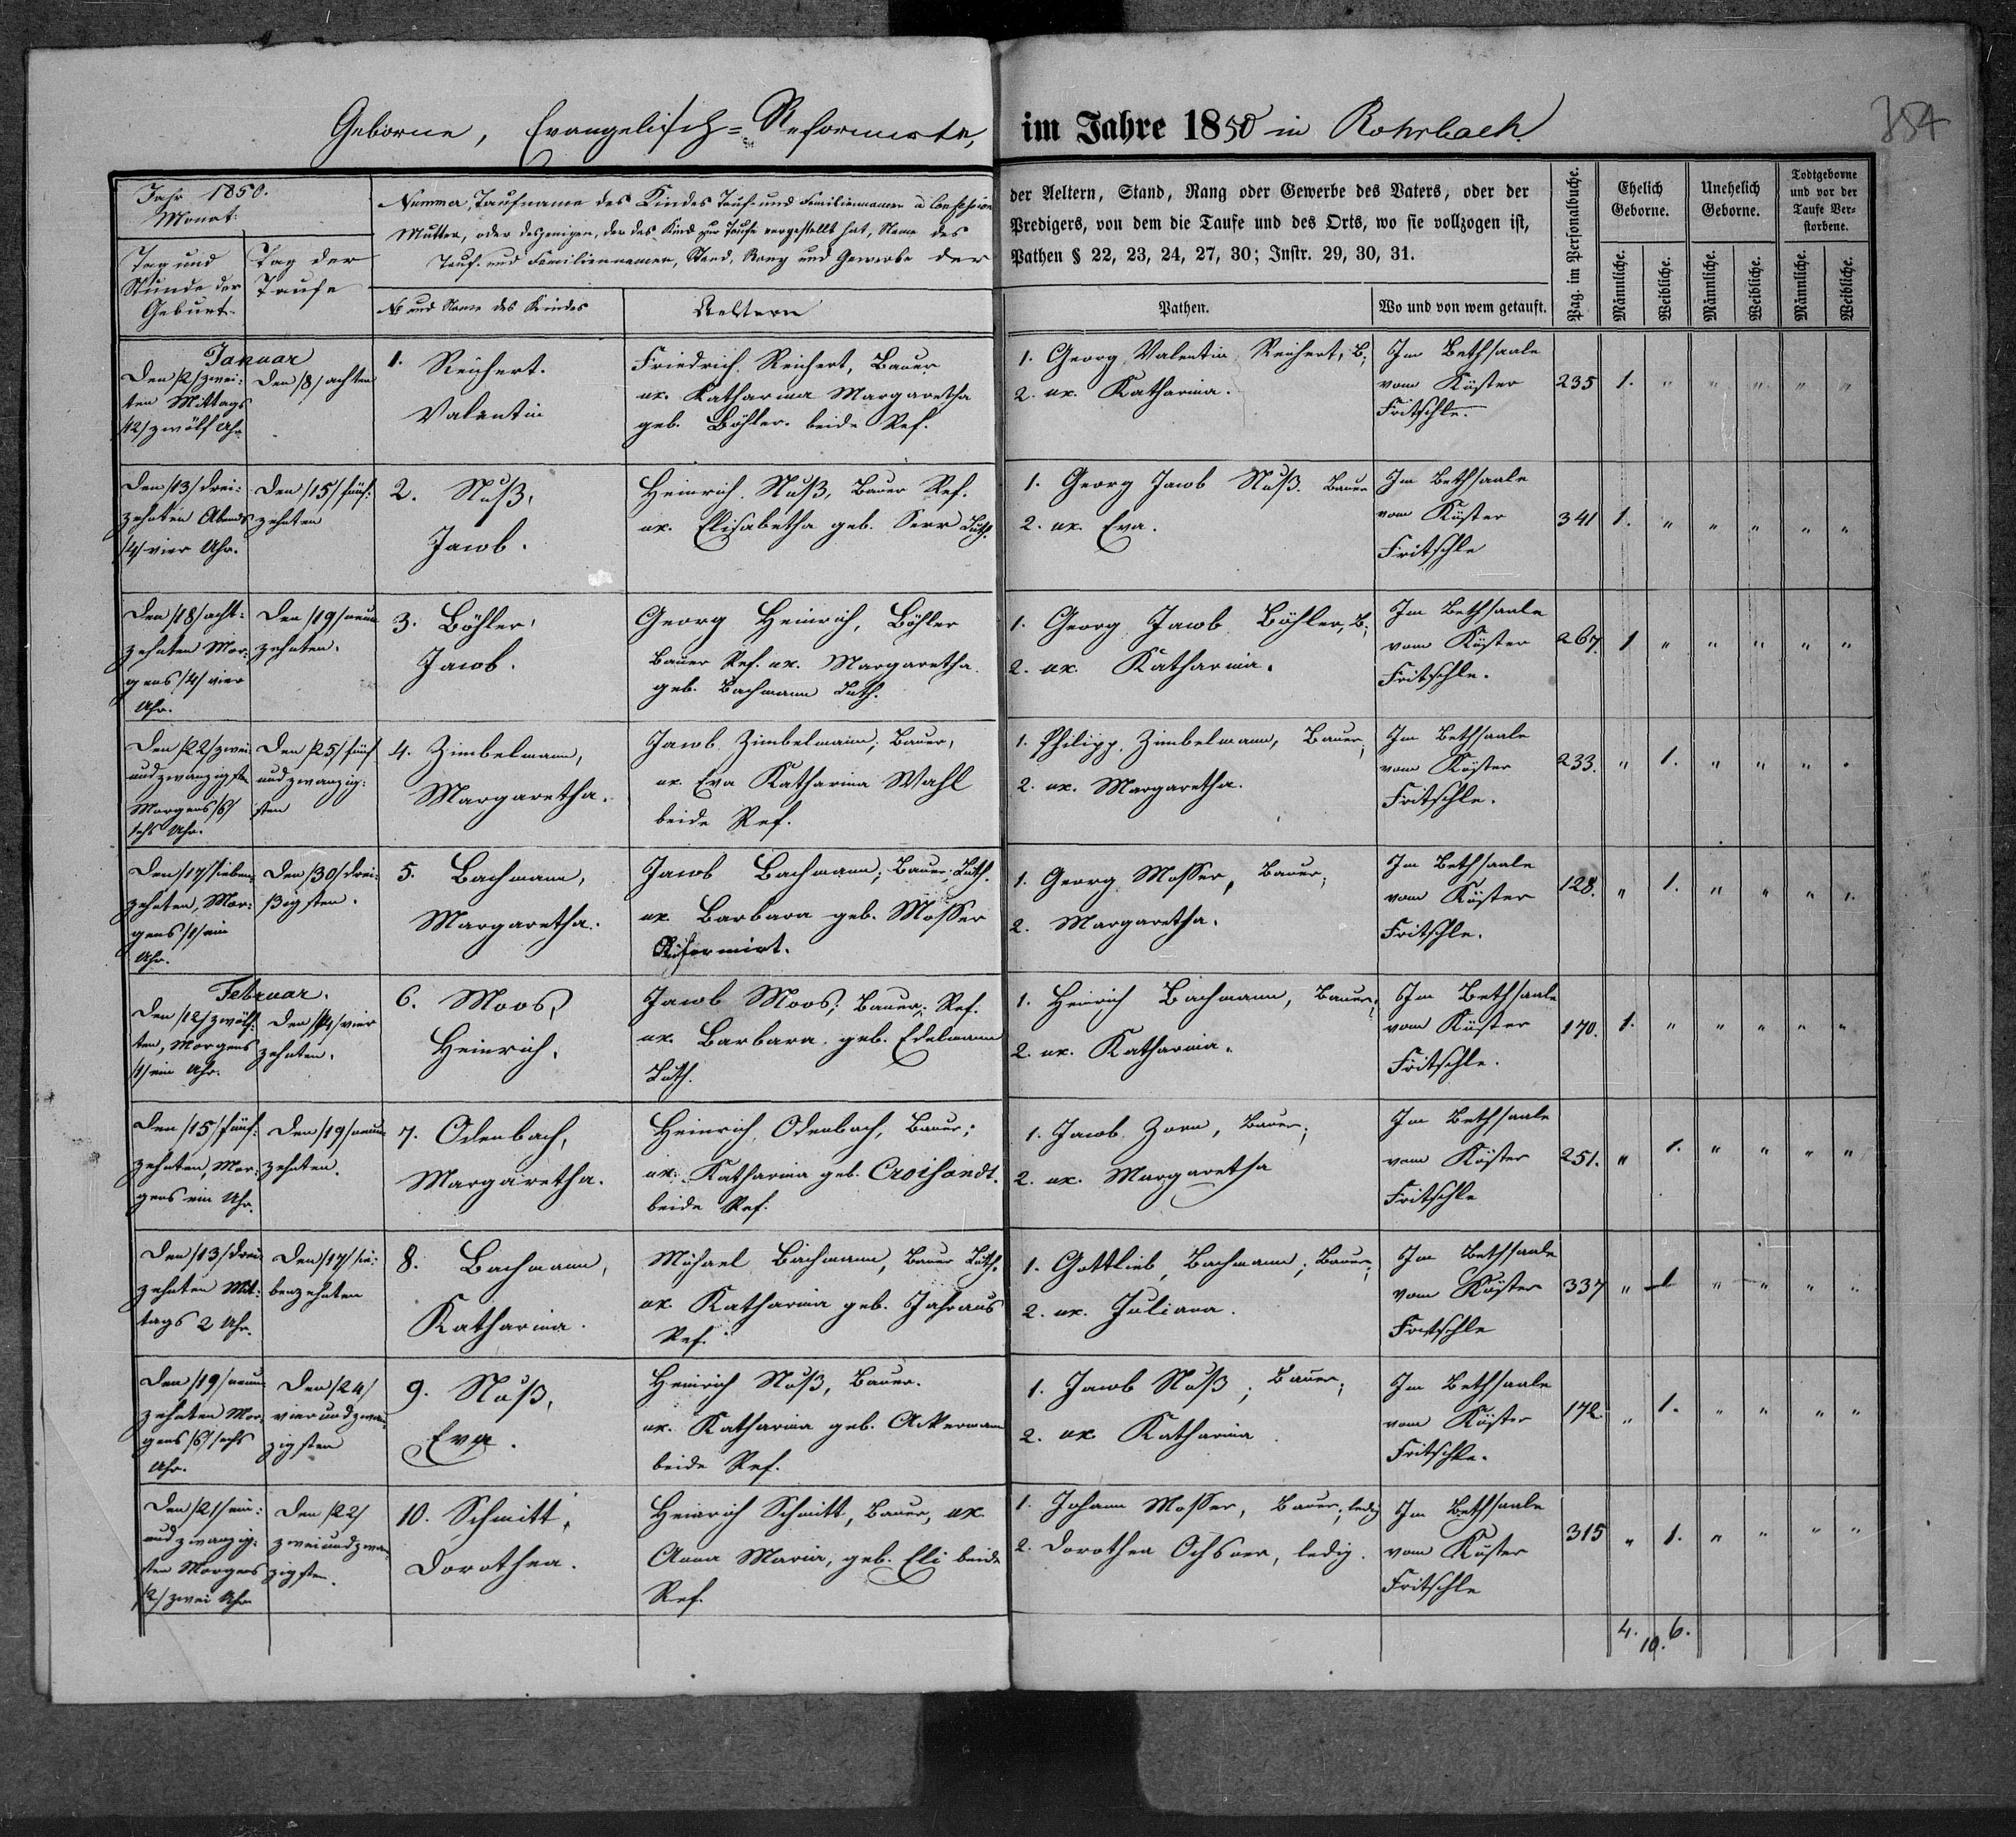 Geborne, Evangelisch=Reformirte, im Jahre 1850 in Rohrbach.
354
Jahr 1850.
Monat:
Tag und
Stunde der
Geburt.
Tag der
Taufe
Nummer, Taufname des Kindes Tauf- und Familiennamen u Confession
Mutter, oder desjenigen, der das Kind zur Taufe vorgestellt hat, Name des
Tauf- und Familiennamen, Stand, Rang und Gewerbe der
No und Name des Kindes
Aeltern
der Aeltern, Stand, Rang oder Gewerbe des Vaters, oder der
Predigers, von dem die Taufe und des Orts, wo sie vollzogen ist,
Pathen § 22, 23, 24, 27, 30; Instr. 29, 30, 31.
Pathen.
Wo und von wem getauft.
Pag. im Personalbuche.
Ehelich
Geborne.
Unehelich
Geborne.
Todtgeborne
und vor der
Taufe Ver-
storbene.
Männliche.
Weibliche.
Männliche.
Weibliche.
Männliche.
Weibliche.
Januar
Den /2/ zwei-
ten Mittags
/12/ zwölf Uhr
Den /8/ achten
1. Reichert.
Valentin
Friedrich Reichert, Bauer
ux. Katharina Margaretha
geb. Böhler. beide Ref.
1. Georg Valentin Reichert, B.
2. ux. Katharina.
Im Bethsaale
vom Küster
Fritschle.
235 1. " " " " "
Den /13/ drei-
zehnten Abends
/4/ vier Uhr.
Den /15/ fünf-
zehnten
2. Nuß,
Jacob.
Heinrich Nuß, Bauer Ref.
ux. Elisabetha geb. Serr Luth.
1. Georg Jacob Nuß. Bauer
2. ux. Eva.
Im Bethsaale
vom Küster
Fritschle
341 1. " " " " "
Den /18/ acht-
zehnten Mor-
gens /4/ vier
Uhr.
Den /19/ neun
zehnten.
3. Böhler,
Jacob.
Georg Heinrich, Böhler
Bauer Ref. ux. Margaretha
geb. Bachmann Luth.
1. Georg Jacob Böhler, B.
2. ux. Katharina.
Im Bethsaale
vom Küster
Fritschle.
267. 1 " " " " "
Den /22/ zwei
und zwanzigsten
Morgens /6/
sechs Uhr.
Den /25/ fünf
und zwanzig-
sten
4. Zimbelmann,
Margaretha.
Jacob Zimbelmann, Bauer,
ux. Eva Katharina Wahl
beide Ref.
1. Philipp Zimbelmann, Bauer,
2. ux. Margaretha.
Im Bethsaale
vom Küster
Fritschle.
233. " 1. " " " "
Den /17/ sieben-
zehnten, Mor-
gens /1/ ein
Uhr.
Den /30/ drei-
ßigsten.
5. Bachmann,
Margaretha.
Jacob Bachmann, Bauer, Luth.
ux. Barbara geb. Mosser
Reformirt.
1. Georg Mosser, Bauer,
2. Margaretha.
Im Bethsaale
vom Küster
Fritschle.
128. " 1. " " " "
Februar.
Den /12/ zwölf-
ten, Morgens
/1/ ein Uhr.
Den /14/ vier
zehnten.
6. Moos,
Heinrich.
Jacob Moos, Bauer, Ref.
ux. Barbara geb. Edelmann
Luth.
1. Heinrich Bachmann, Bauer,
2. ux. Katharina.
Im Bethsaale
vom Küster
Fritschle.
170. 1. " " " " "
Den /15/ fünf-
zehnten, Mor-
gens ein Uhr.
Den /19/ neun
zehnten.
7. Odenbach,
Margaretha.
Heinrich Odenbach, Bauer;
ux. Katharina geb. Croissandt.
beide Ref.
1. Jacob Zorn, Bauer,
2. ux. Margaretha
Im Bethsaale
vom Küster
Fritschle
251. " 1. " " " "
Den /13/ drei
zehnten Mit-
tags 2 Uhr.
Den /17/ sie-
benzehnten
8. Bachmann,
Katharina.
Michael Bachmann, Bauer Luth.
ux. Katharina geb. Jahraus
Ref.
1. Gottlieb Bachmann, Bauer,
2. ux. Juliana.
Im Bethsaale
vom Küster
Fritschle
337 " 1 " " " "
Den /19/ neun-
zehnten Mor-
gens /6/ sechs
Uhr.
Den /24/
vier und zwan-
zigsten
9. Nuß,
Eva.
Heinrich Nuß, Bauer.
ux. Katharina geb. Ackermann
beide Ref.
1. Jacob Nuß, Bauer,
2. ux Katharina
Im Bethsaale
vom Küster
Fritschle.
172 " 1. " " " "
Den /21/ ein-
und zwanzig-
sten Morgens
/2/ zwei Uhr
Den /22/
zwei und zwan-
zigsten.
10. Schmitt,
Dorothea.
Heinrich Schmitt, Bauer, ux
Anna Maria, geb. Eli beide
Ref.
1. Johann Mosser, Bauer, ledig
2. Dorothea Ochsner, ledig.
Im Bethsaale
vom Küster
Fritschle
315 " 1. " " " "
4. 6.
10.